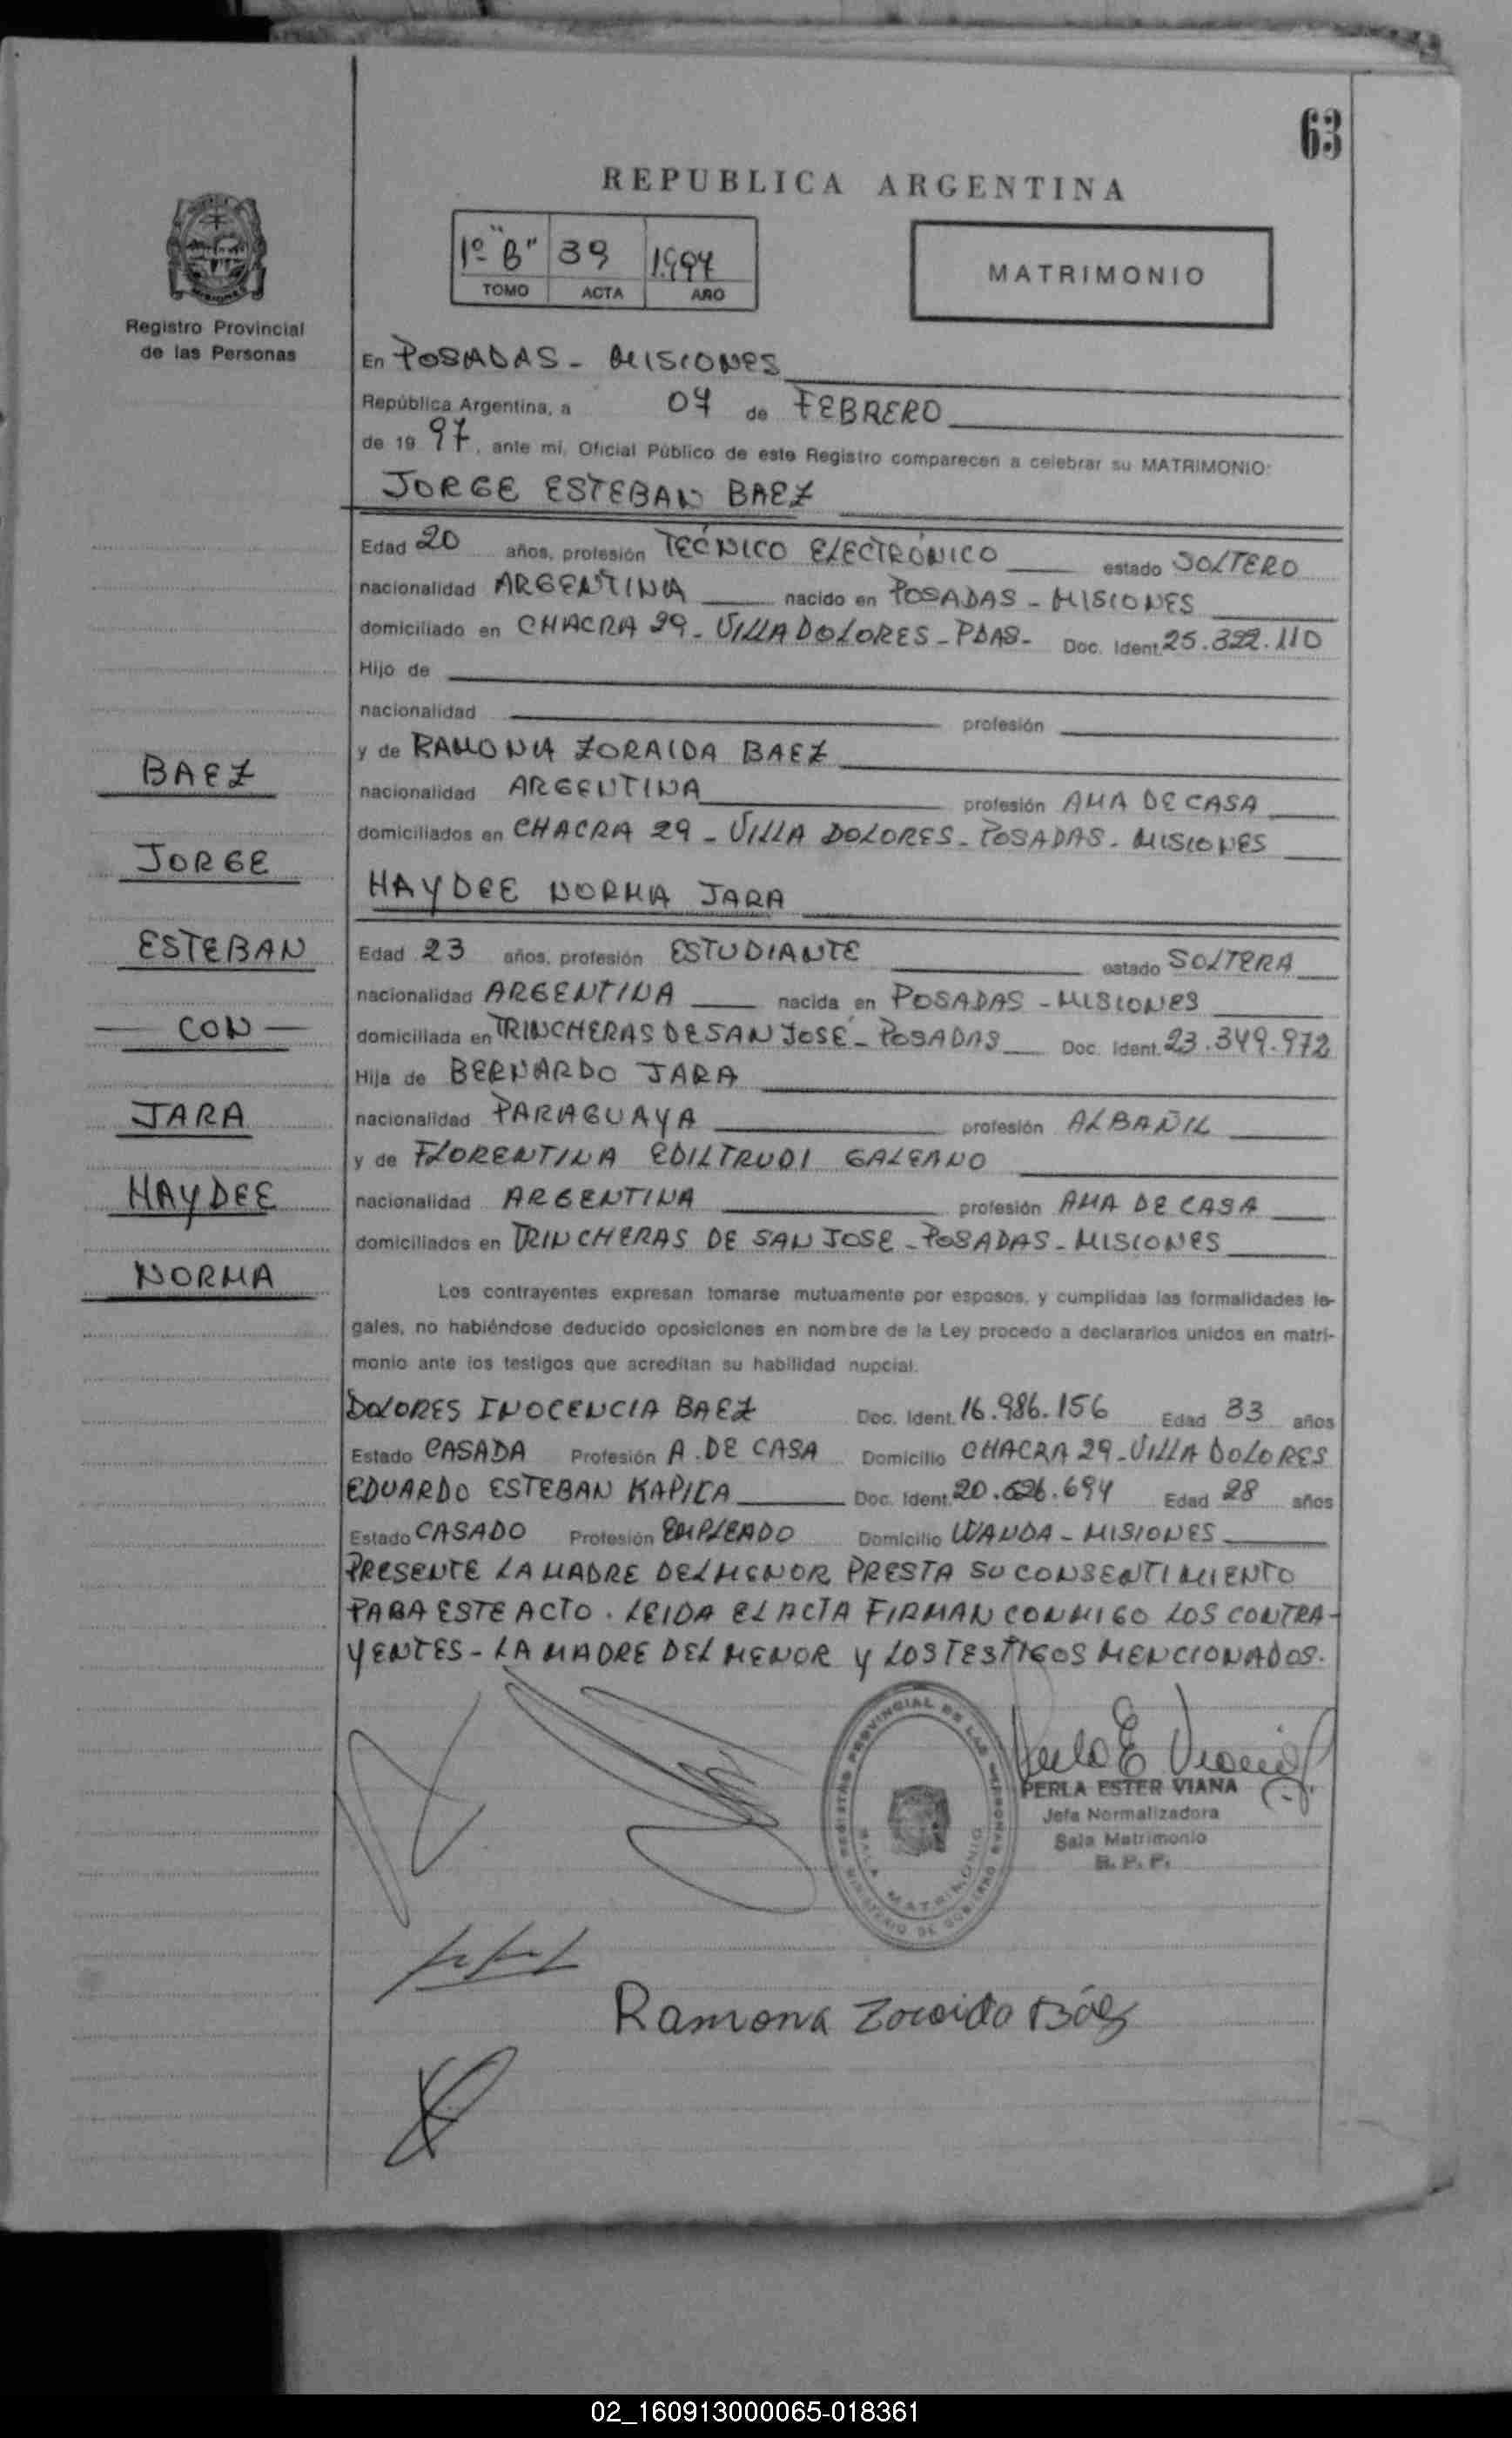 63
REPUBLICA ARGENTINA
1º "B" 39 1997
TOMO ACTA AÑO
MATRIMONIO
Registro Provincial
de las Personas
En POSADAS - MISIONES
República Argentina, a 04 de FEBRERO
de 19 97, ante mi, Oficial Público de este Registro comparecen a celebrar su MATRIMONIO:
JORGE ESTEBAN BAEZ
Edad 20 años, profesión TECNICO ELECTRÓNICO estado SOLTERO
nacionalidad ARGENTINA nacido en POSADAS - MISIONES
domiciliado en CHACRA 29 - VILLA DOLORES - PDAS - Doc. Ident. 25.322.110
Hijo de
nacionalidad profesión
y de RAMONA ZORAIDA BAEZ
nacionalidad ARGENTINA profesión AMA DE CASA
domiciliados en CHACRA 29 - VILLA DOLORES - POSADAS - MISIONES
HAYDEE NORMA JARA
Edad 23 años, profesión ESTUDIANTE estado SOLTERA
nacionalidad ARGENTINA nacida en POSADAS - MISIONES
domiciliada en TRINCHERAS DE SAN JOSÉ - POSADAS Doc. Ident. 23.349.972
Hija de BERNARDO JARA
nacionalidad PARAGUAYA profesión ALBAÑIL
y de FLORENTINA EDILTRUDI GALEANO
nacionalidad ARGENTINA profesión AMA DE CASA
domiciliados en TRINCHERAS DE SAN JOSE - POSADAS - MISIONES
BAEZ
JORGE
ESTEBAN
— CON —
JARA
HAYDEE
NORMA
Los contrayentes expresan tomarse mutuamente por esposos, y cumplidas las formalidades le-
gales, no habiéndose deducido oposiciones en nombre de la Ley procedo a declararlos unidos en matri-
monio ante los testigos que acreditan su habilidad nupcial.
DOLORES INOCENCIA BAEZ Doc. Ident. 16.986.156 Edad 33 años
Estado CASADA Profesión A. DE CASA Domicilio CHACRA 29 - VILLA DOLORES
EDUARDO ESTEBAN KAPICA Doc. Ident. 20.626.694 Edad 28 años
Estado CASADO Profesión EMPLEADO Domicilio WANDA - MISIONES
PRESENTE LA MADRE DEL MENOR PRESTA SU CONSENTIMIENTO
PARA ESTE ACTO. LEIDA EL ACTA FIRMAN CONMIGO LOS CONTRA-
YENTES - LA MADRE DEL MENOR Y LOS TESTIGOS MENCIONADOS.
REGISTRO PROVINCIAL DE LAS PERSONAS
SALA MATRIMONIO
MINISTERIO DE GOBIERNO
Perla E Viana
PERLA ESTER VIANA
Jefa Normalizadora
Sala Matrimonio
R. P. P.
Ramona Zoraida Báez
02_160913000065-018361